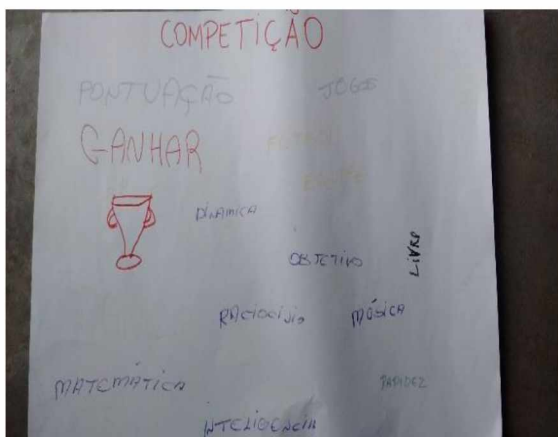 COMPETIÇÃO
PONTUAÇÃO JOGOS
GANHAR
DINAMICA
OBJETIVO
LIVRO
RACIOCÍNIO MÚSICA
MATEMÁTICA RAPIDEZ
INTELIGENCIA